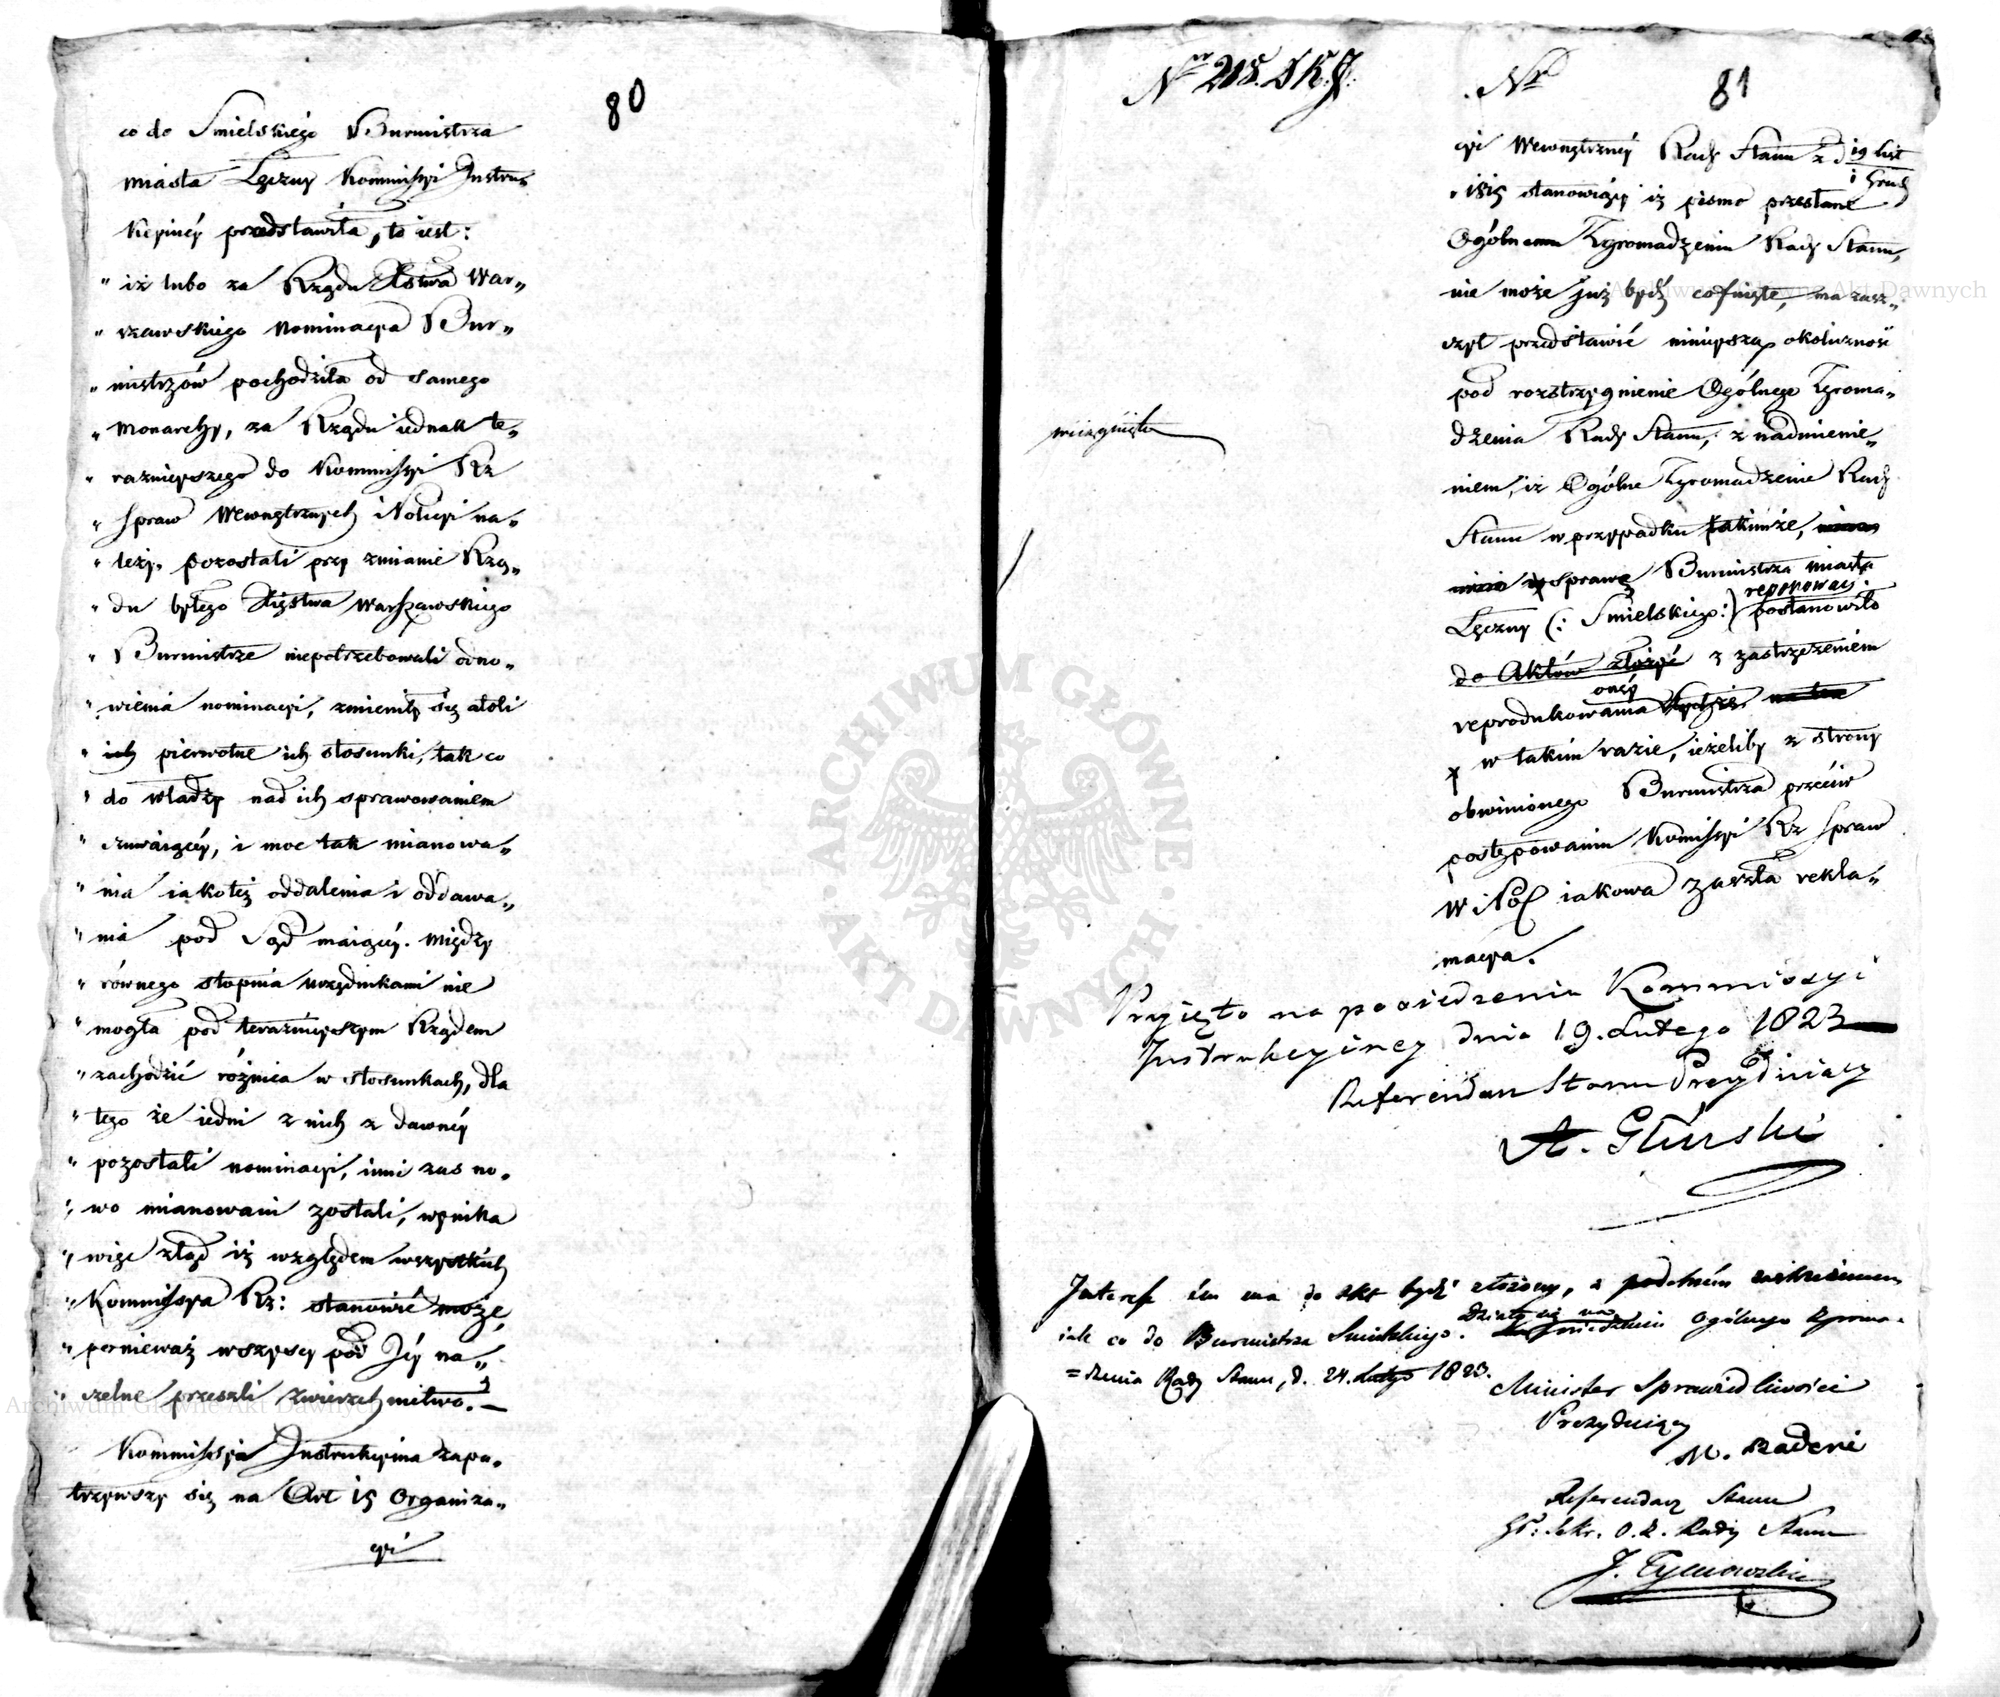 80
co do Smielskiego Burmistrza
miasta Łęczny Kommissyi Instru-
kcyinéy przedstawiła, to iest:
„ iż lubo za Rządu Xięstwa War-
„ szawskiego nominacya Bur-
„ mistrzów pochodziła od samego
„ Monarchy, za Rządu iednak te-
„ raznieyszego do Kommissyi Rz
„ Spraw Wewnętrznych i Policyi na-
„ leży, pozostali przy zmianie Rzą-
„ du byłego Xięstwa Warszawskiego
„ Burmistrze niepotrzebowali odno-
„ wienia nominacyi, zmieniły się atoli
„ ich pierwotne ich stosunki, tak co
„ do władzy nad ich sprawowaniem
„ czuwaiącéy, i moc tak mianowa-
„ nia iakoteż oddalenia i oddawa-
„ nia pod Sąd maiącéy. Między
„ równego stopnia urzędnikami nie
„ mogła pod teraźnieyszym Rządem
„ zachodzić różnica w stosunkach, dla
„ tego że iedni z nich z dawnéy
„ pozostali nominacyi, inni zas no-
„ wo mianowani zostali, wynika
„ więc ztąd iż względem wszystkich
„ Kommissya Rz: stanowić może,
„ ponieważ wszyscy pod Jéy na-
„ czelne przeszli zwierzchnictwo."
Kommissya Instrukcyina zapa-
trzywszy się na Art 15 Organiza-
cyi
Nr 218. S.K.J.
Nr
81
cyi Wewnętrznéy Rady Stanu z d 19 List
1 Grud
1815 stanowiący iż pismo przesłane
Ogólnemu Zgromadzeniu Rady Stanu,
nie może już bydź cofnięte, ma zasz-
czyt przedstawić ninieyszą okoliczność
pod rozstrzygnienie Ogólnego Zgroma-
dzenia Rady Stanu, z nadmienie-
niem, iż Ogólne Zgromadzenie Rady
wciągnięto
Stanu w przypadku takimże,
sprawę Burmistrza miasta
reponować
Łęczny (: Smielskiego:) postanowiło
do Aktów złożyć z zastrzeżeniem
onéy
reprodukowania
w takim razie, ieżeliby z strony
obwinionego Burmistrza przeciw
postępowaniu Komissyi Rz Spraw
W i Pol iakowa zaszła rekla-
macya.
Przyjęto na posiedzeniu Kommissyi
Instrukcyiney dnia 19. Lutego 1823
Referendarz Stanu Prezyduiący
A. Głuski
Interess ten ma do akt bydź złożony, z podobném zastrzeżeniem
iak co do Burmistrza Smielskiego. Działo się na posiedzeniu Ogólnego Zgroma-
=dzenia Rady Stanu, d. 24. Lutego 1823.
Minister Sprawiedliwości
Prezyduiący
M. Badeni
Referendarz Stanu
Sekr. O. Z. Rady Stanu
J. Tymowski
ARCHIWUM GŁÓWNE AKT DAWNYCH
Archiwum Główne Akt Dawnych
Archiwum Główne Akt Dawnych